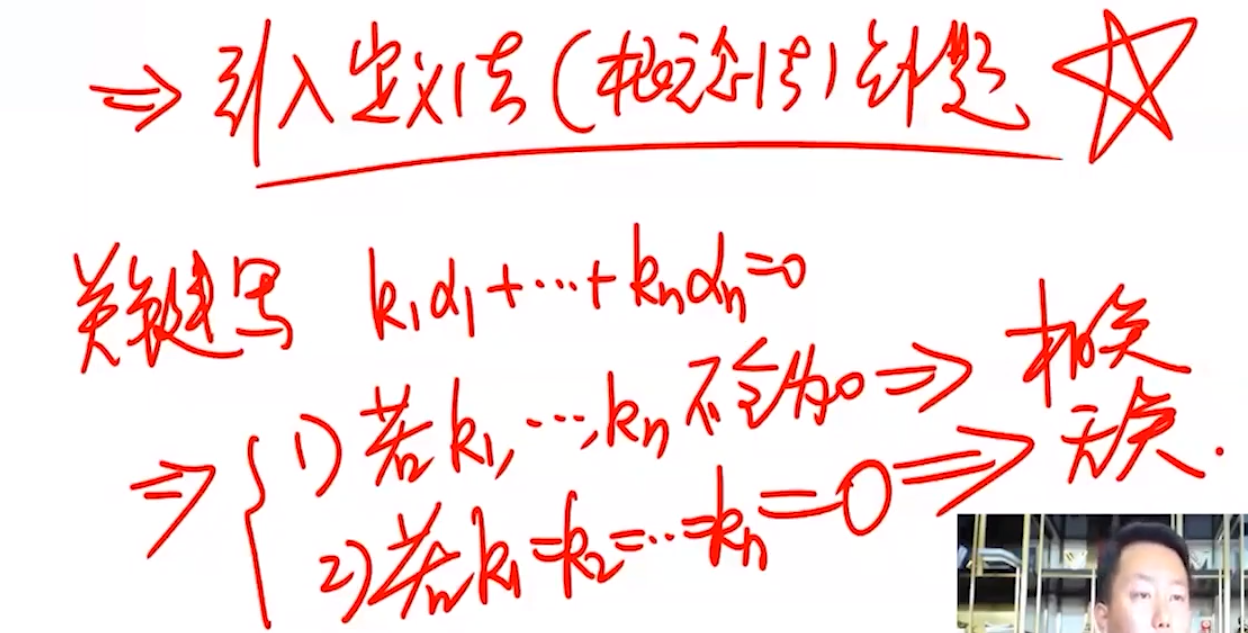 ⇒ 引入定义法(概念法)解题 ☆
关键写 k₁α₁+…+kₙαₙ=0
⇒ { 1) 若k₁,…,kₙ不全为0 ⇒ 相关
2) 若k₁=k₂=…=kₙ=0 ⇒ 无关.